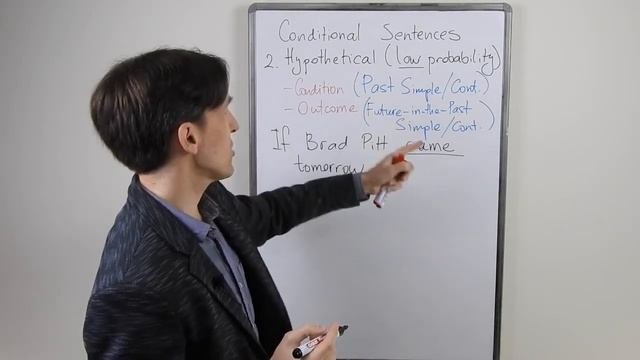 Conditional Sentences
2. Hypothetical (low probability)
- Condition (Past Simple/Cont.)
- Outcome (Future-in-the-Past
Simple/Cont.)
If Brad Pitt came
tomorrow,